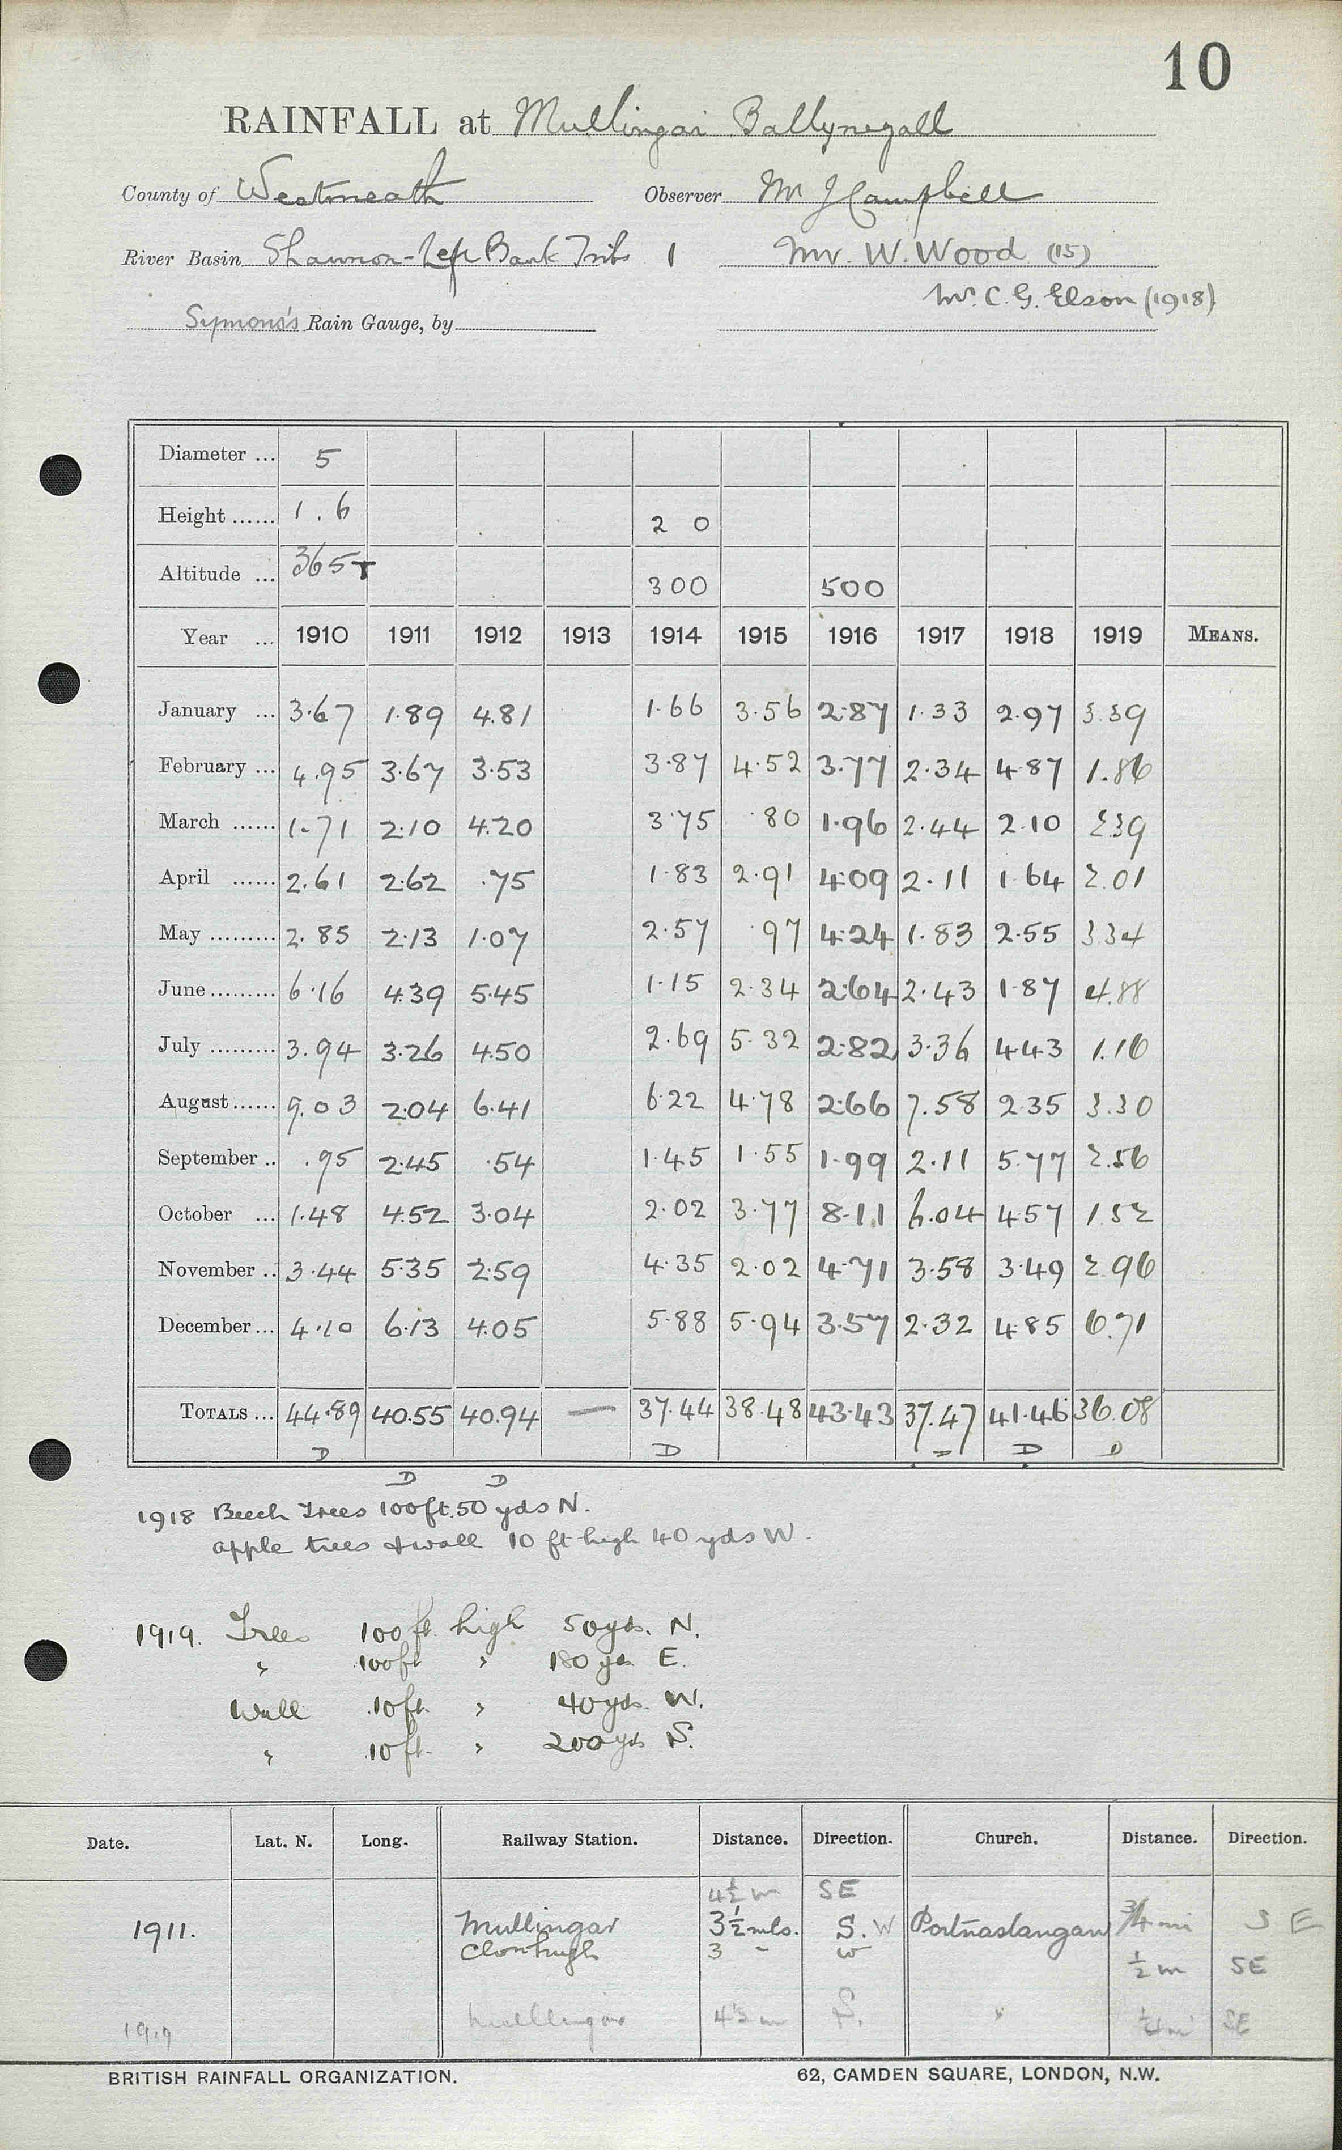 10
RAINFALL at Mullingar Ballynegall
County of Westmeath Observer Mr J Campbell
River Basin Shannon-Left Bank Tribs 1 Mr. W. Wood (15)
Mr. C. G. Elson (1918)
Symons's Rain Gauge, by
Diameter ... 5
Height ...... 1 . 6 2 0
Altitude ... 365T 300 500
Year ... 1910 1911 1912 1913 1914 1915 1916 1917 1918 1919 MEANS.
January ... 3.67 1.89 4.81 1.66 3.56 2.87 1.33 2.97 3.39
February ... 4.95 3.67 3.53 3.87 4.52 3.77 2.34 4.87 1.86
March ...... 1.71 2.10 4.20 3.75 .80 1.96 2.44 2.10 2.39
April ...... 2.61 2.62 .75 1.83 2.91 4.09 2.11 1.64 2.01
May ......... 2.85 2.13 1.07 2.57 .97 4.24 1.83 2.55 3.34
June ......... 6.16 4.39 5.45 1.15 2.34 2.64 2.43 1.87 4.88
July ......... 3.94 3.26 4.50 2.69 5.32 2.82 3.36 4.43 1.16
August ...... 9.03 2.04 6.41 6.22 4.78 2.66 7.58 2.35 3.30
September .. .95 2.45 .54 1.45 1.55 1.99 2.11 5.77 2.56
October ... 1.48 4.52 3.04 2.02 3.77 8.11 6.04 4.57 1.52
November .. 3.44 5.35 2.59 4.35 2.02 4.71 3.58 3.49 2.96
December ... 4.10 6.13 4.05 5.88 5.94 3.57 2.32 4.85 6.71
TOTALS ... 44.89 40.55 40.94 — 37.44 38.48 43.43 37.47 41.46 36.08
D D D D D
D D
1918 Beech Trees 100ft. 50 yds N.
apple trees & wall 10 ft high 40 yds W.
1919. Trees 100 ft. high 50 yds. N.
" 100ft " 180 yds E.
Wall 10ft. " 40 yds. W.
" 10ft. " 200 yds S.
Date. Lat. N. Long. Railway Station. Distance. Direction. Church. Distance. Direction.
4½ m SE
1911. Mullingar 3½ mls. S. W Portnashangan ¾ mi S E
Clonhugh 3 " W
½ m SE
1919 Mullingar 4½ m S. " ¼ m SE
BRITISH RAINFALL ORGANIZATION. 62, CAMDEN SQUARE, LONDON, N.W.